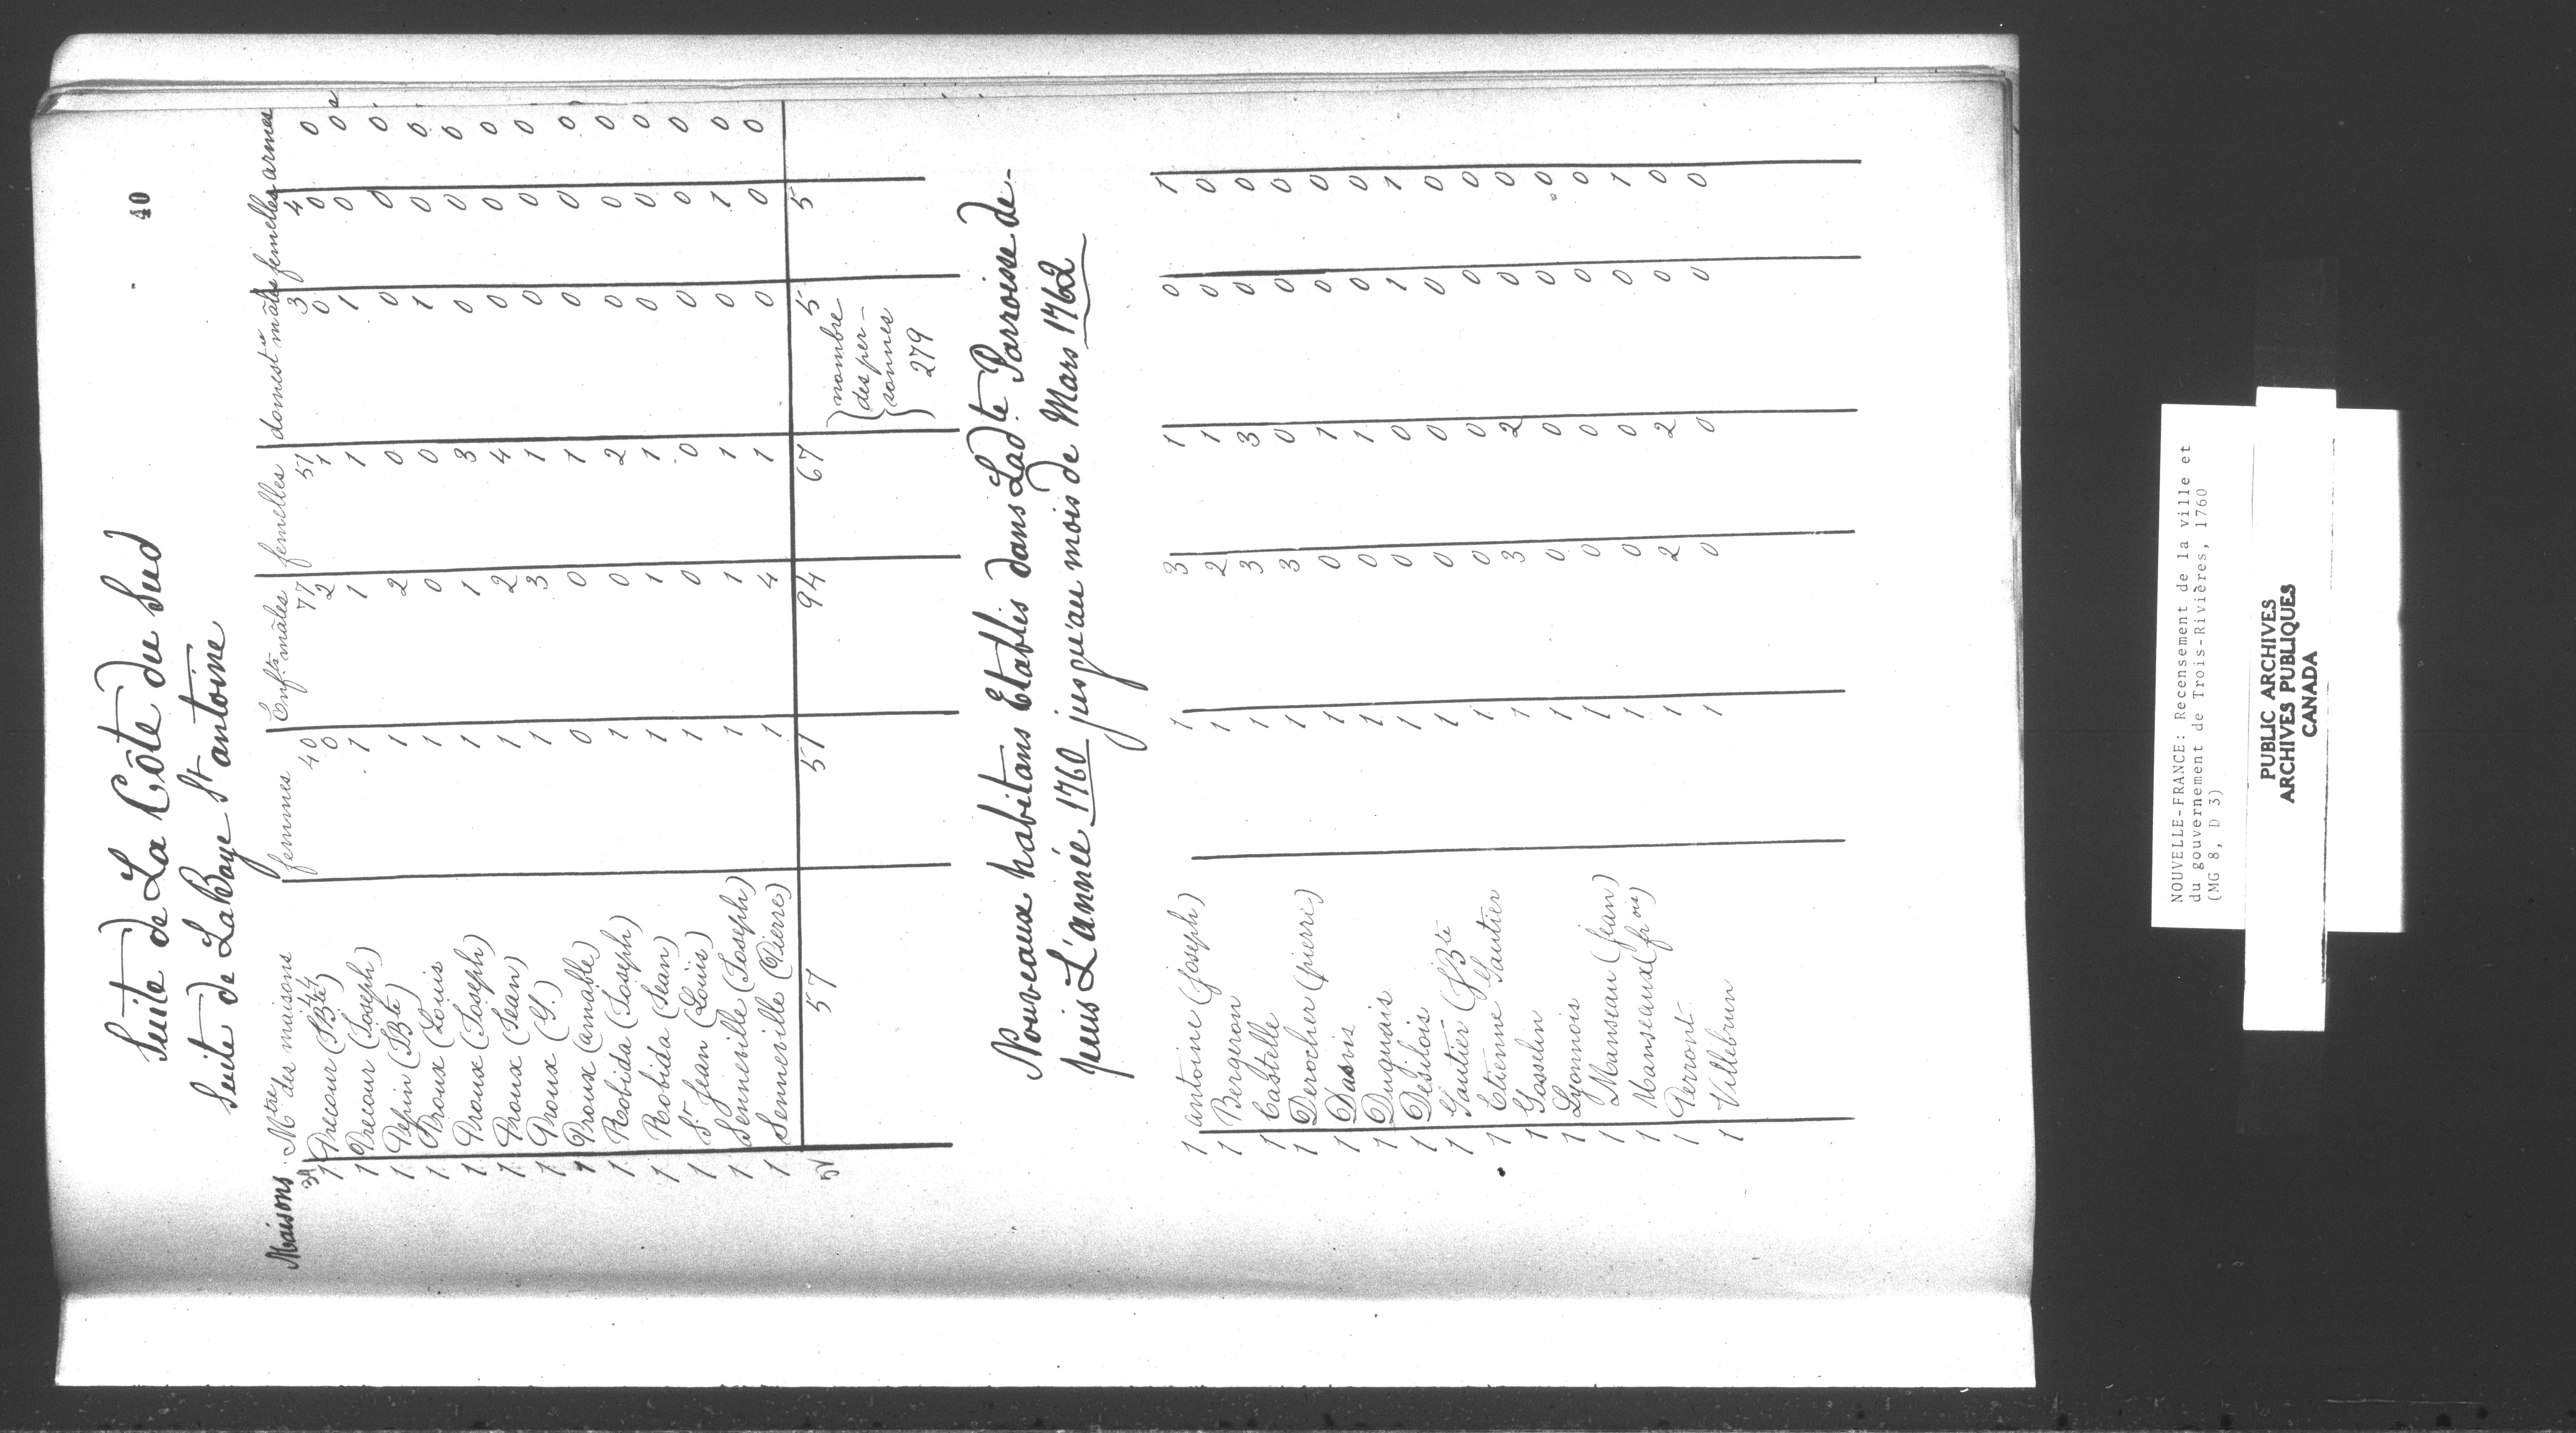 40
Suite de La Côte du Sud
Suite de LaBaye St antoine
Maisons Mtre des maisons femmes Enfts mâles femelles domestes mâles femelles armes
39 44 40 77 51 3 4
1 Precour (JBte) 0 2 1 0 0 0
1 Precour (Joseph) 1 1 1 1 0 0
1 Pepin (JBte) 1 2 0 0 0 0
1 Proux (Louis 1 0 0 1 0 0
1 Proux (Joseph) 1 1 3 0 0 0
1 Proux (Jean) 1 2 4 0 0 0
1 Proux (G.) 1 3 1 0 0 0
1 Proux (amable) 0 0 1 0 0 0
1 Robida (Joseph) 1 0 2 0 0 0
1 Robida (Jean) 1 1 1 0 0 0
1 St Jean (Louis) 1 0 0 0 0 0
1 Senneville (Joseph) 1 1 1 0 1 0
1 Senneville (Pierre) 1 4 1 0 0 0
57 51 94 67 5 5
nombre
des per-
sonnes
279
Nouveaux habitans Etablis dans Ladte Parroisse de-
puis L'année 1760 jusqu'au mois de Mars 1762
1 antoine (joseph) 1 3 1 0 1
1 Bergeron 1 2 1 0 0
1 Castelle 1 3 3 0 0
1 Derocher (pierre) 1 3 0 0 0
1 Dasnis 1 0 1 0 0
1 Duguais 1 0 1 0 0
1 Desilois 1 0 0 1 1
1 Gautier (JBte 1 0 0 0 0
1 Etienne Gautier 1 0 0 0 0
1 Gosselin 1 3 2 0 0
1 Lyonnois 1 0 0 0 0
1 Manseau (jean) 1 0 0 0 0
1 Manseaux (frois) 1 0 0 0 1
1 Perront 1 2 2 0 0
1 Villebrun 1 0 0 0 0
NOUVELLE-FRANCE: Recensement de la ville et
du gouvernement de Trois-Rivières, 1760
(MG 8, D 3)
PUBLIC ARCHIVES
ARCHIVES PUBLIQUES
CANADA